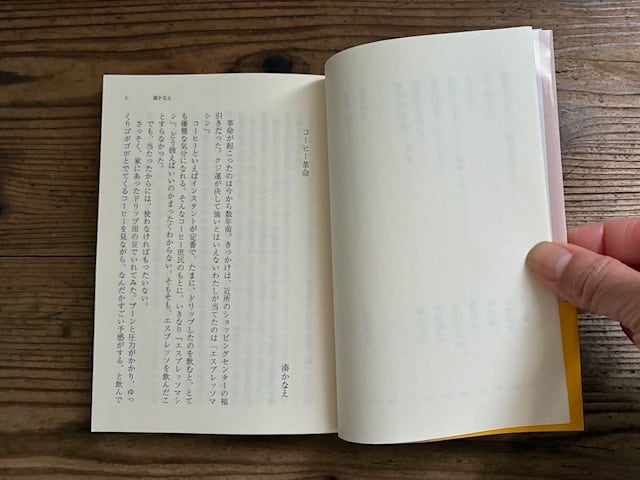 コーヒー革命
湊かなえ
革命が起こったのは今から数年前。きっかけは、近所のショッピングセンターの福
引きだった。クジ運が決して強いとはいえないわたしが当てたのは「エスプレッソマ
シン」。
コーヒーといえばインスタントが定番で、たまに、ドリップしたのを飲むと、とて
も優雅な気分になれる。そんなコーヒー庶民のもとに、いきなり「エスプレッソマシ
ン」。どう扱えばいいのかまったくわからない。そもそも、エスプレッソを飲んだこ
とすらなかった。
でも、当たったからには、使わなければもったいない。
さっそく、家にあったドリップ用の豆でいれてみた。ブーンと圧力がかかり、ゆっ
くりゴボゴボとでてくるコーヒーを見ながら、なんだかすごい予感がする、と飲んで
湊かなえ